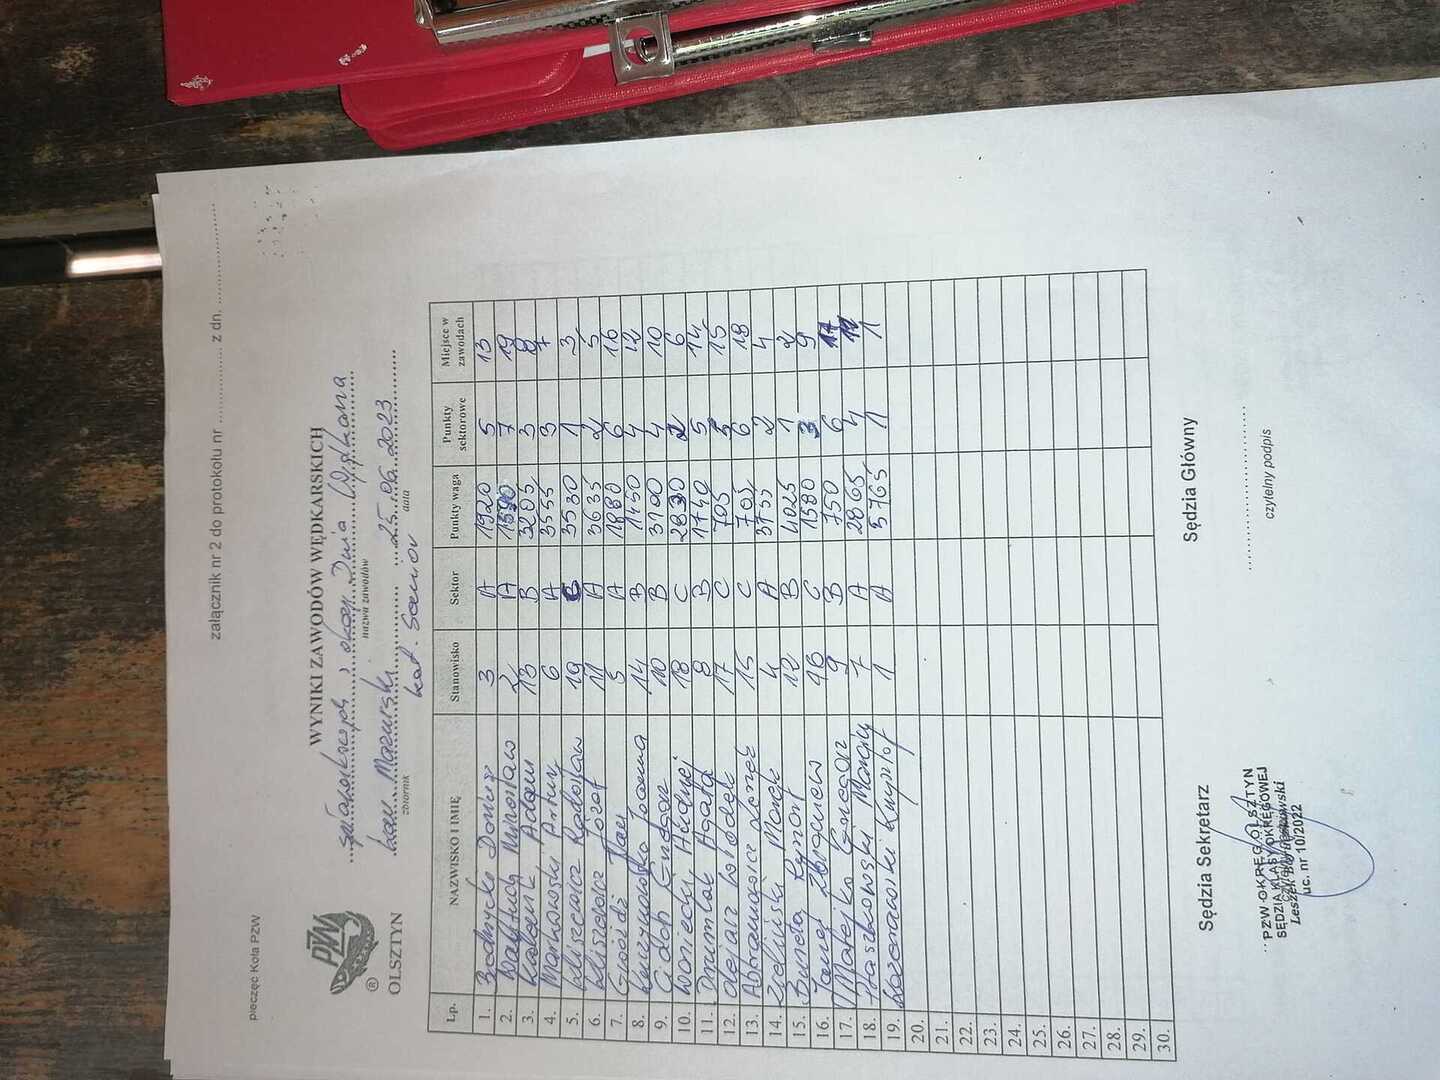 załącznik nr 2 do protokołu nr .................... z dn. ....................
pieczęć Koła PZW
PZW
®
OLSZTYN
WYNIKI ZAWODÓW WĘDKARSKICH
z okazji Dnia Wędkarza
nazwa zawodów
Mazurski 25.06.2023
zbiornik data
kat. Senior
Lp. NAZWISKO I IMIĘ Stanowisko Sektor Punkty waga Punkty sektorowe Miejsce w zawodach
1. 3 A 1920 5 13
2. Mirosław 2 A 1590 7 19
3. Adam 13 B 3205 3 8
4. Markowski Artur 6 A 3555 3 7
5. Klisiewicz Radosław 19 C 3530 1 3
6. Klisiewicz Józef 11 A 3635 2 5
7. Jan 5 A 1880 6 16
8. Joanna 14 B 1450 4 12
9. 10 B 3100 4 10
10. Koniecki Andrzej 18 C 2830 2 6
11. Drumlak Agata 8 B 1740 5 14
12. 17 C 705 5 15
13. Abramowicz 15 C 705 6 18
14. Zieliński Marek 4 A 3755 2 4
15. Szymon 12 B 4025 1 2
16. Zbigniew 16 C 1580 3 9
17. Matejko Grzegorz 9 B 750 6 17
18. Staszkowski Maciej 7 A 2865 4 11
19. Krzysztof 1 A 5765 1 1
20.
21.
22.
23.
24.
25.
26.
27.
28.
29.
30.
Sędzia Sekretarz Sędzia Główny
PZW OKRĘG OLSZTYN
SĘDZIA KLASY OKRĘGOWEJ
Leszek
uc. nr 10/2022
czytelny podpis